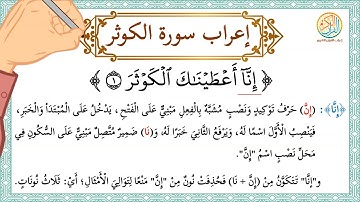 إعراب سورة الكوثر
﴿ إِنَّآ أَعْطَيْنَٰكَ ٱلْكَوْثَرَ ١ ﴾
﴿إِنَّا﴾: (إِنَّ) حَرْفُ تَوْكِيدٍ وَنَصْبٍ مُشَبَّهٌ بِالْفِعْلِ مَبْنِيٌّ عَلَى الْفَتْحِ، يَدْخُلُ عَلَى الْمُبْتَدَأِ وَالْخَبَرِ،
فَيَنْصِبُ الْأَوَّلَ اسْمًا لَهُ، وَيَرْفَعُ الثَّانِيَ خَبَرًا لَهُ وَ(نَا) ضَمِيرٌ مُتَّصِلٌ مَبْنِيٌّ عَلَى السُّكُونِ فِي
مَحَلِّ نَصْبٍ اسْمُ "إِنَّ".
وَ"إِنَّا" تَتَكَوَّنُ مِنْ (إِنَّ + نَا) فَحُذِفَتْ نُونٌ مِنْ "إِنَّ" مَنْعًا لِتَوَالِيَ الْأَمْثَالِ؛ أَيْ: ثَلَاثُ نُونَاتٍ.